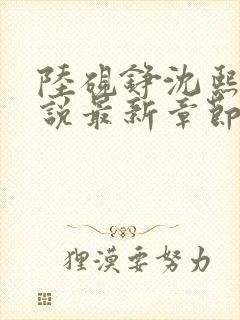 陸硯錚沈熙
說最新章節
狸漠要努力